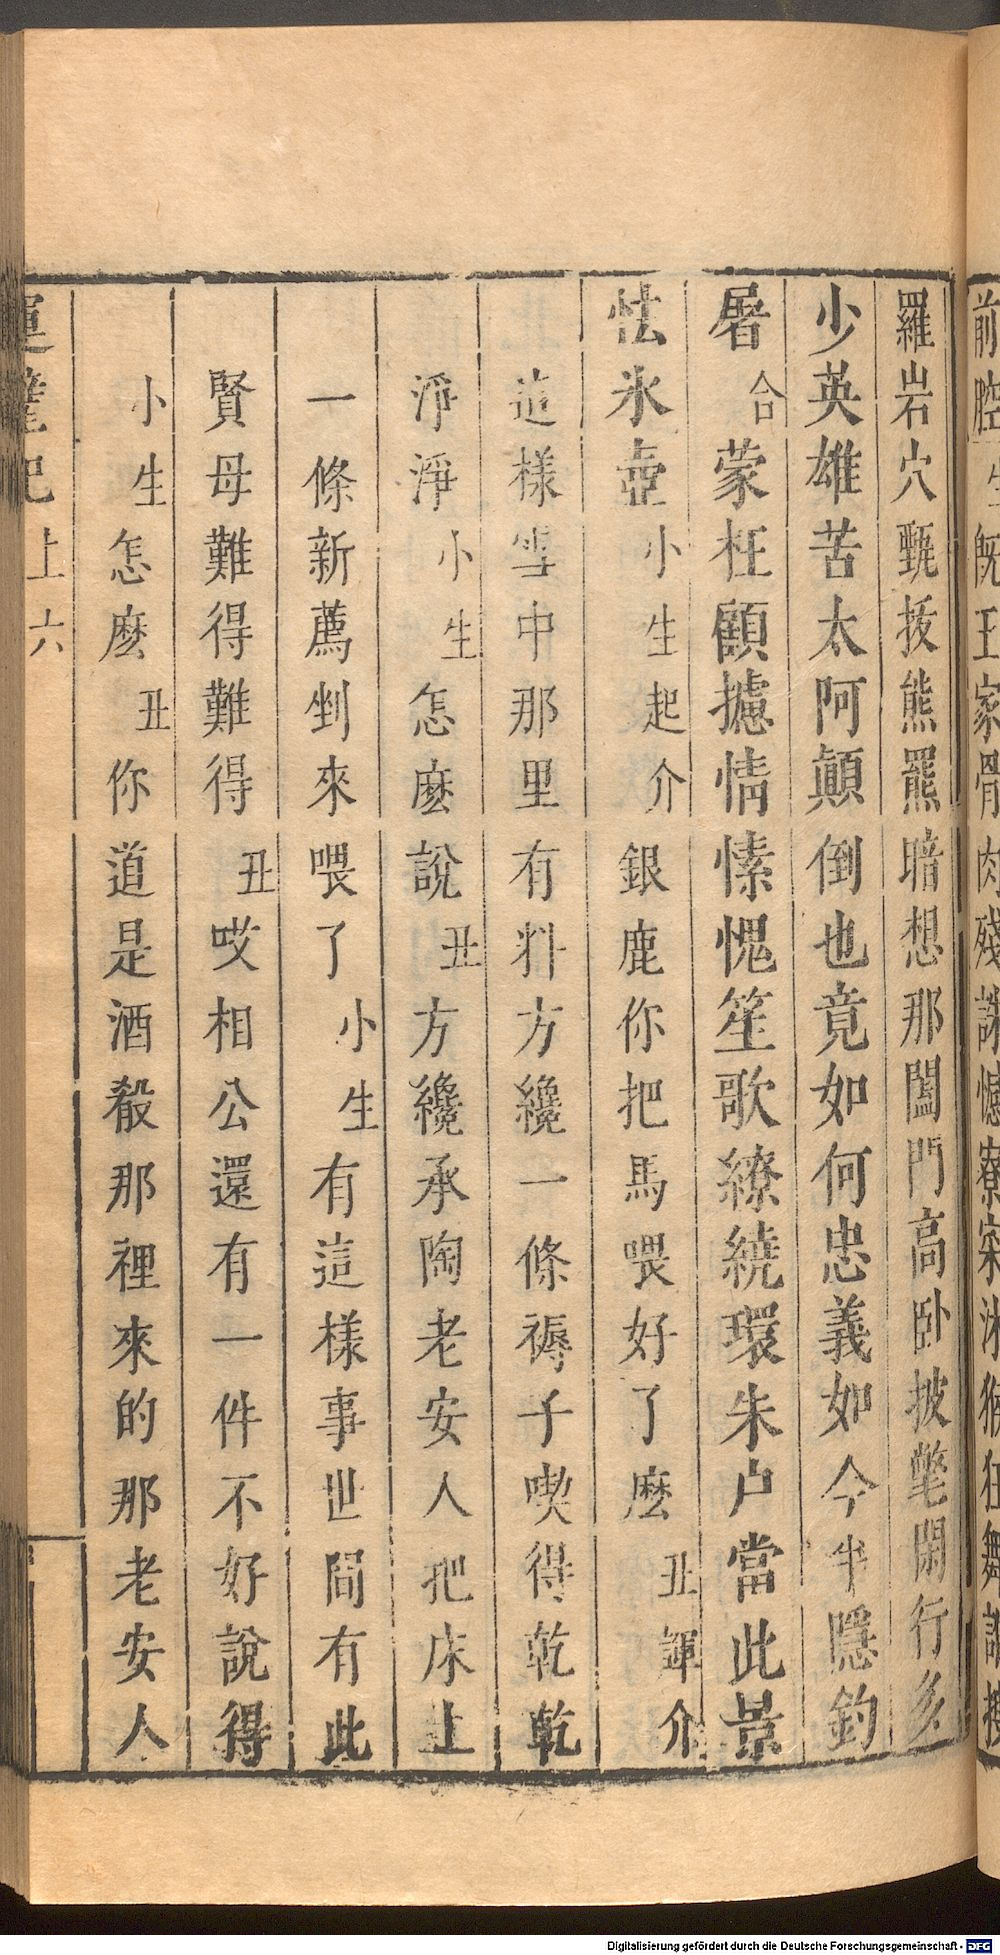 前腔 生 既王家骨肉殘 寮寀沐猴狂舞
羅岩穴甄拔熊羆暗想那闔門高卧披氅閑行多
少英雄苦太阿顛倒也竟如何忠義如今半隱釣
屠 合 蒙枉顧攄情愫愧笙歌繚繞環朱户當此景
怯氷壺 小生起介 銀鹿你把馬喂好了麽 丑諢介
這樣雪中那里有料方纔一條褥子喫得乾乾
淨淨 小生 怎麽說 丑 方纔承陶老安人把床上
一條新薦剉來喂了 小生 有這樣事世間有此
賢母難得難得 丑 哎相公還有一件不好說得
小生 怎麽 丑 你道是酒殽那裡來的那老安人
運甓記 上 六
Digitalisierung gefördert durch die Deutsche Forschungsgemeinschaft - DFG